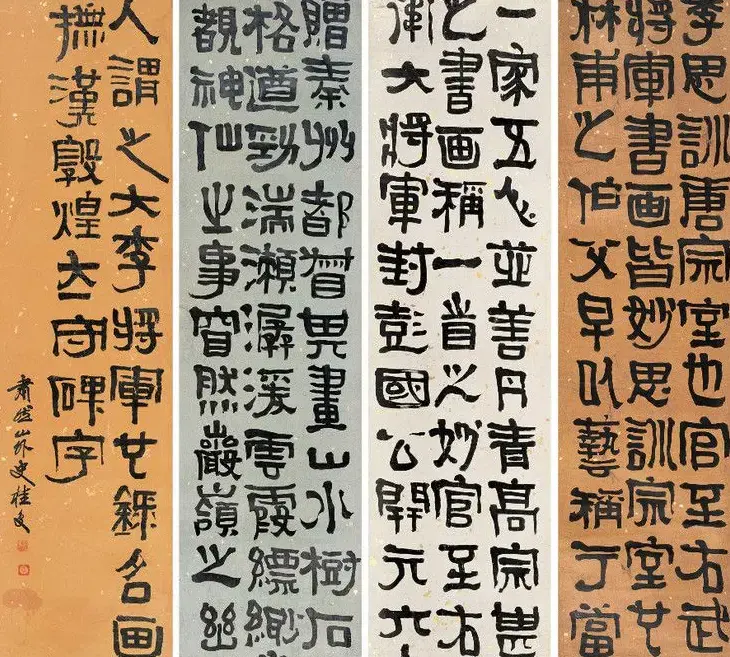 思訓唐宗室也官至右武
將軍書画皆妙思訓宗室其
李林甫之伯父早以藝稱于當
一家五人並善丹青高宗甚
之書画稱一旹之妙官至右
衛大將軍封彭國公開元六
贈秦州都督其畫山水樹石
格遒勁湍瀨潺湲雲霞縹緲
覩神仙之事窅然巖嶺之幽
人謂之大李將軍其錄名画
撫漢敦煌太守碑字
肅然山外史桂馥